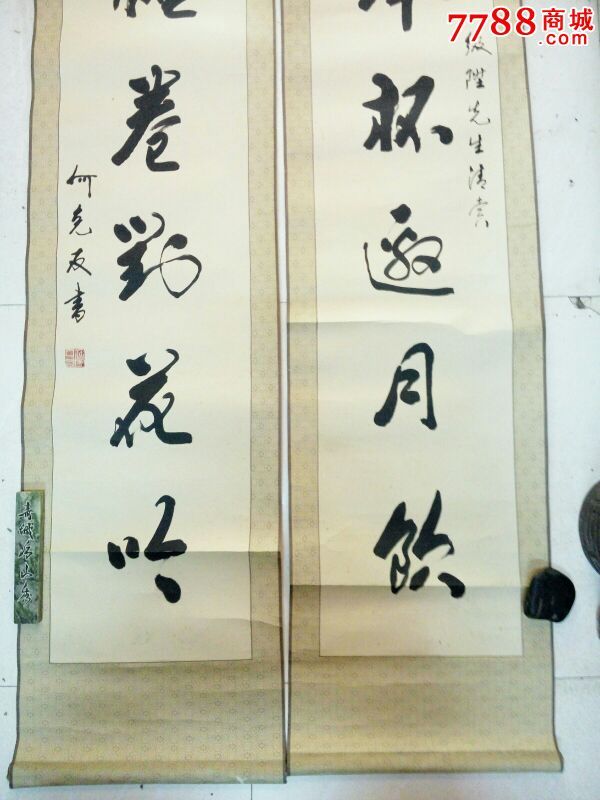 7788商城
.com
杯邀月飲
陞先生清賞
卷對花吟
何克友書